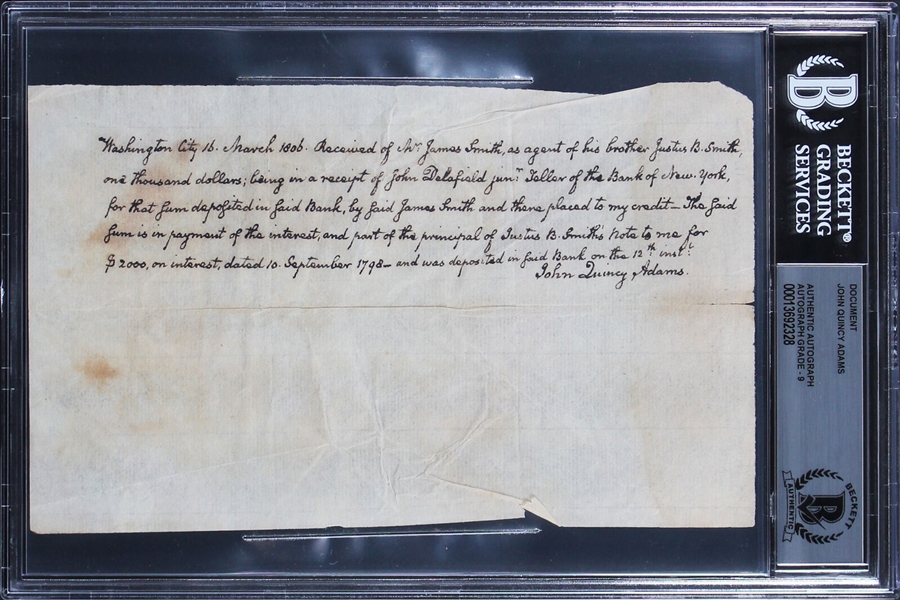 Washington City 16. March 1806. Received of Mr. James Smith, as agent of his brother Justus B. Smith,
one thousand dollars; being in a receipt of John Delafield junr. Teller of the Bank of New-York,
for that sum deposited in said Bank, by said James Smith and there placed to my credit — The said
sum is in payment of the interest, and part of the principal of Justus B. Smiths Note to me for
$2000, on interest, dated 10. September 1798 — and was deposited in said Bank on the 12th instt.
John Quincy Adams.
BECKETT®
GRADING
SERVICES
B
DOCUMENT
JOHN QUINCY ADAMS
AUTHENTIC AUTOGRAPH
AUTOGRAPH GRADE - 9
00013692328
BECKETT
B
AUTHENTIC